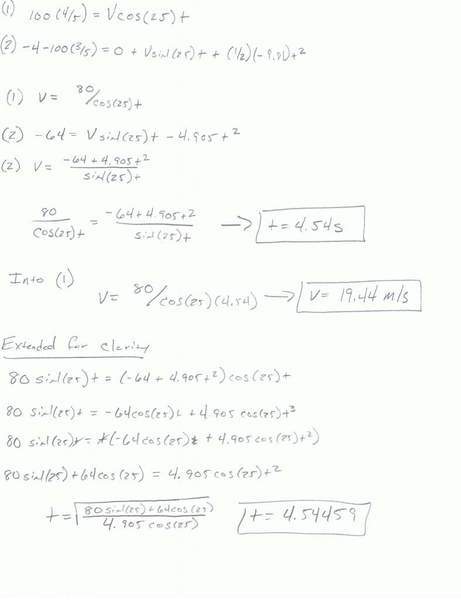 (1) 100(4/5) = Vcos(25)t
(2) -4-100(3/5) = 0 + Vsin(25)t + (1/2)(-9.81)t²
(1) V = 80/cos(25)t
(2) -64 = Vsin(25)t - 4.905t²
(2) V = -64+4.905t²/sin(25)t
80/cos(25)t = -64+4.905t²/sin(25)t → t = 4.54s
Into (1)
V = 80/cos(25)(4.54) → V = 19.44 m/s
Extended for clarity
80 sin(25)t = (-64 + 4.905t²)cos(25)t
80 sin(25)t = -64cos(25)t + 4.905cos(25)t³
80 sin(25)t = t(-64cos(25)t + 4.905cos(25)t²)
80sin(25)+64cos(25) = 4.905cos(25)t²
t = √80sin(25)+64cos(25)/4.905cos(25) t = 4.54459